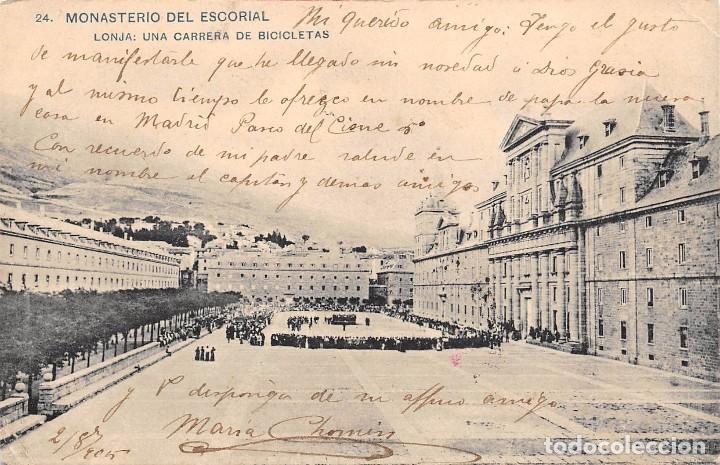 24. MONASTERIO DEL ESCORIAL
LONJA: UNA CARRERA DE BICICLETAS
Mi querido amigo: Tengo el gusto
de manifestarle que he llegado sin novedad á Dios Grasia
y al mismo tiempo le ofrezco en nombre de papa la nueva
casa en Madrid Paseo del
Con recuerdo de mi padre salude en
mi nombre el capitán y demas amigos
y V disponga de su affmo amigo
Maria
2/8
todocoleccion.net